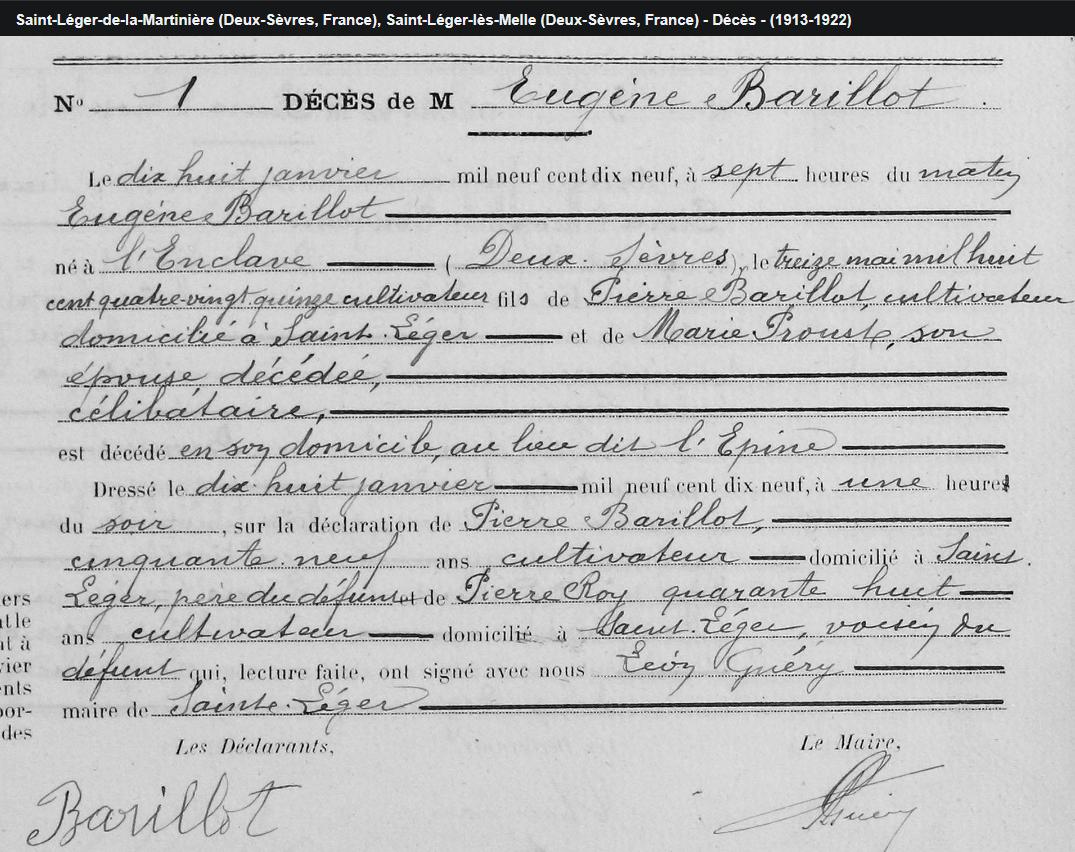 Saint-Léger-de-la-Martinière (Deux-Sèvres, France), Saint-Léger-lès-Melle (Deux-Sèvres, France) - Décès - (1913-1922)
N° 1 DÉCÈS de M Eugéne Barillot.
Le dix huit janvier mil neuf cent dix neuf, à sept heures du matin
Eugéne Barillot
né à l'Enclave (Deux-Sèvres), le treize mai mil huit
cent quatre-vingt-quinze cultivateur fils de Pierre Barillot, cultivateur
domicilié à Saint-Léger et de Marie Proust, son
épouse décédée,
célibataire,
est décédé en son domicile, au lieu dit l'Epine
Dressé le dix huit janvier mil neuf cent dix neuf, à une heure
du soir, sur la déclaration de Pierre Barillot,
cinquante-neuf ans, cultivateur domicilié à Saint-
Léger, père du défunt et de Pierre Roy quarante huit
ans cultivateur domicilié à Saint-Léger, voisin du
défunt qui, lecture faite, ont signé avec nous Guéry
maire de Sainte-Léger
iers
nt à
vier
ents
por-
des
Les Déclarants, Le Maire,
Barillot